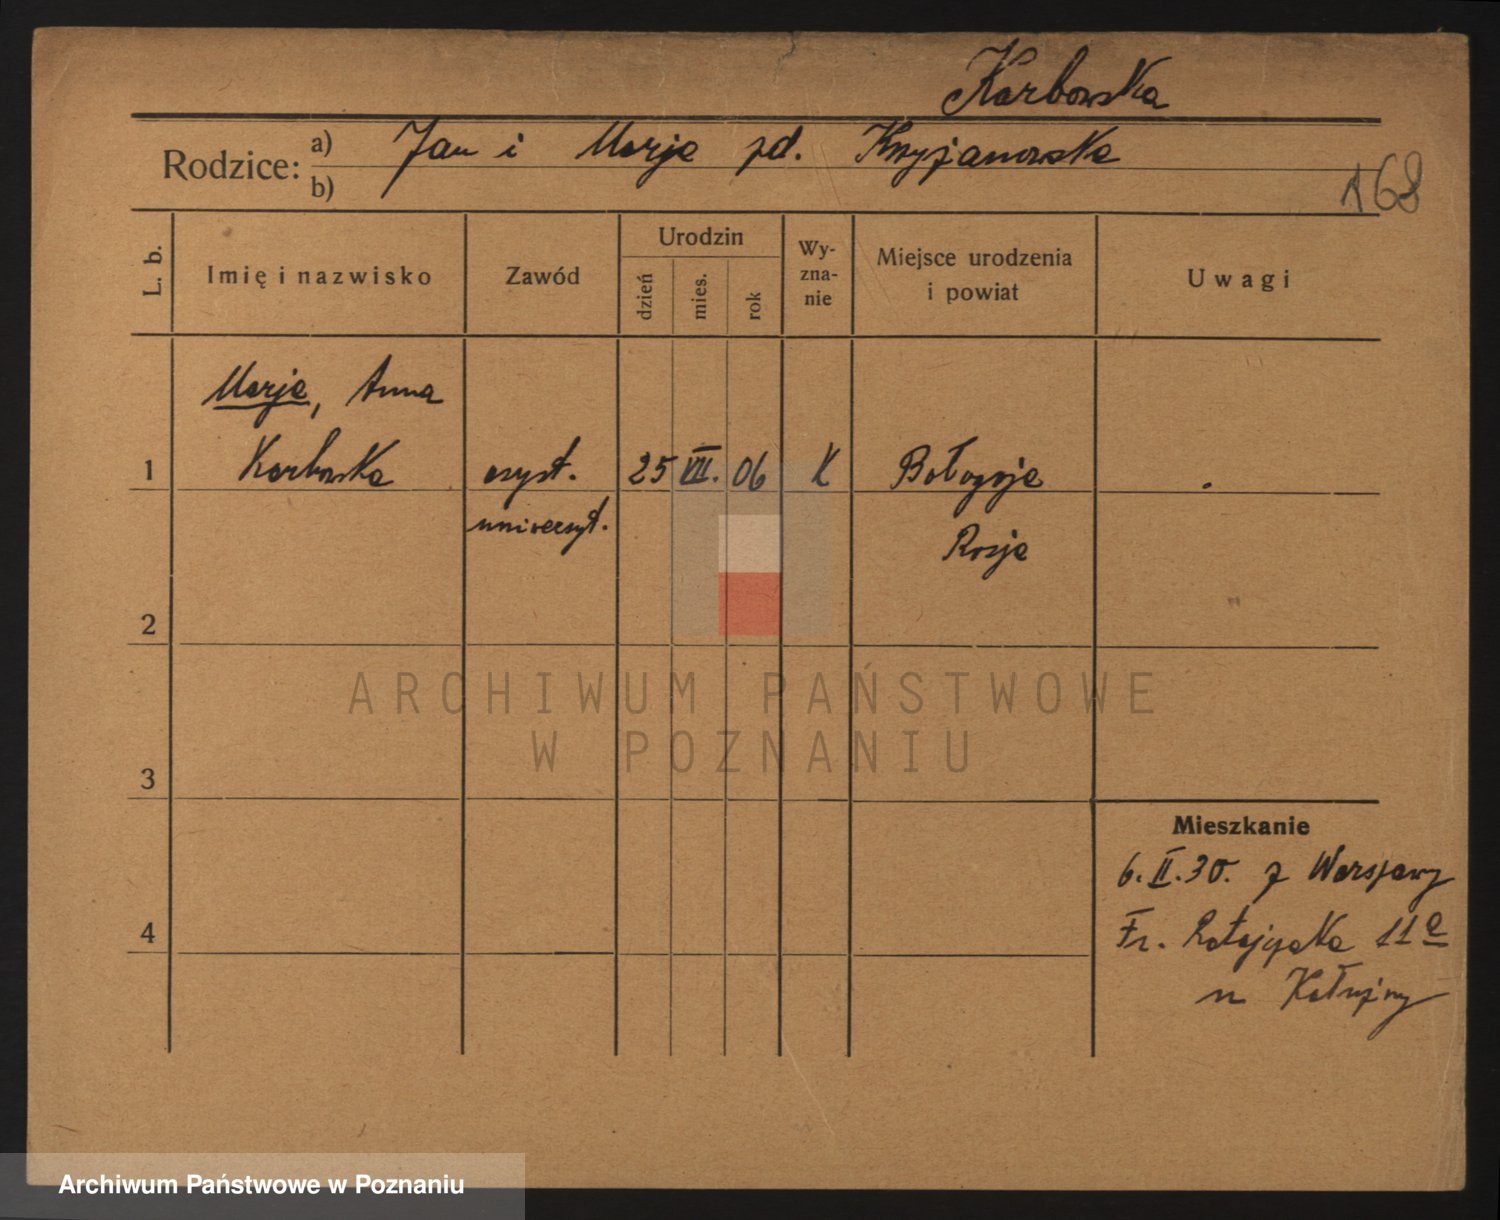 Karbowska
Rodzice: a) Jan i Marja zd. Krzyżanowska
b)
168
L. b. Imię i nazwisko Zawód Urodzin dzień mies. rok Wy-zna-nie Miejsce urodzenia i powiat Uwagi
Marja, Anna
1 Karbowska asyst. 25 VII. 06 K Bołogoje
uniwersyt. Rosja
2
ARCHIWUM PAŃSTWOWE
W POZNANIU
3
Mieszkanie
6.II.30. z Warszawy
4 Fr. Ratajczaka 11a
u Kałużny
Archiwum Państwowe w Poznaniu